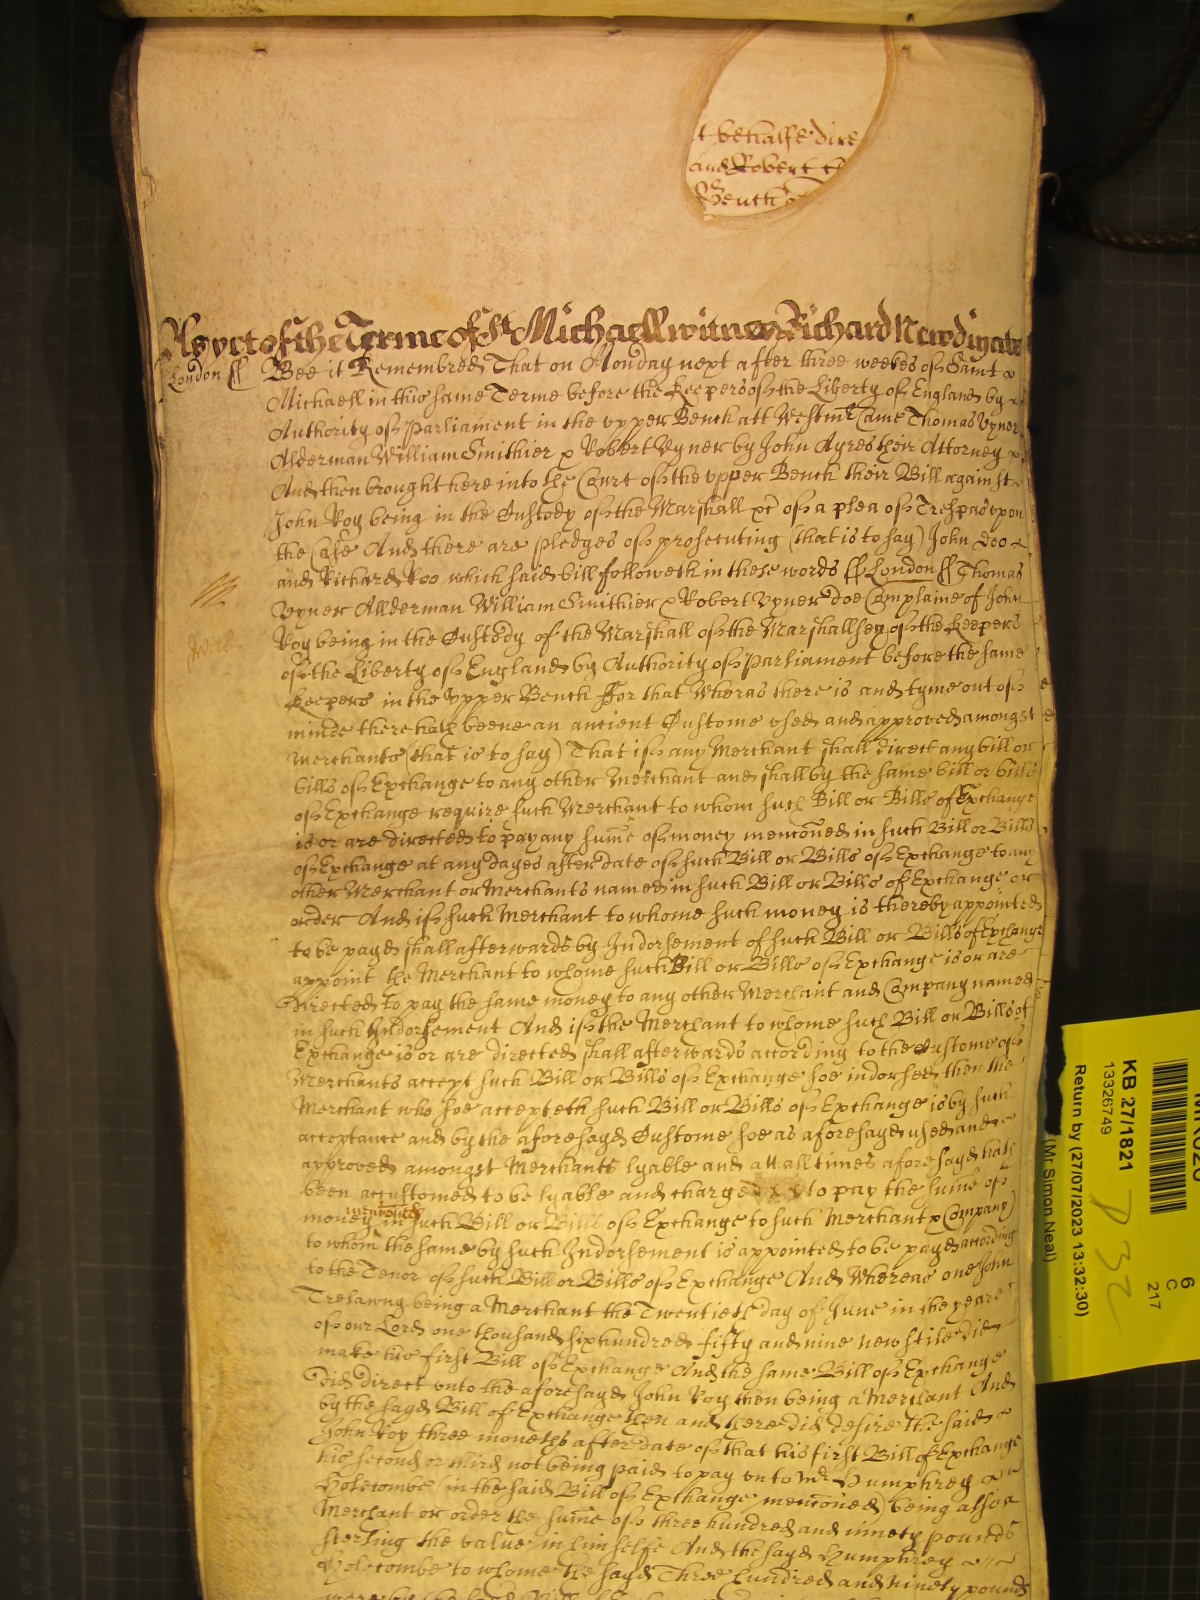 t behalfe dire
and Robert t
Gentle
As yet of the Terme of St Michaell witnes Richard Newdigate
London ss Bee it Remembred That on Monday next after three weekes of Saint
Michaell in this same Terme before the Keepers of the Liberty of England by
Authority of Parliament in the upper Bench att Westmr Came Thomas Vyner
Alderman William Smithier & Robert Vyner by John Ayres their Attorney
And then brought here into the Court of the upper Bench their Bill against
John Roy being in the Custody of the Marshall &c of a plea of Trespas upon
the Case And there are pledges of prosecuting (that is to say) John Doo
and Richard Roo which said bill followeth in these words ss London ss Thomas
Vyner Allderman William Smithier & Robert Vyner doe Complaine of John
Roy being in the Custody of the Marshall of the Marshallsey of the Keepers
of the Liberty of England by Authority of Parliament before the same
Keepers in the Upper Bench For that Wheras there is and tyme out of
minde there hath beene an ancient Custome used and approved amongst
Merchants (that is to say) That if any Merchant shall direct any bill or
bills of Exchange to any other Merchant and shall by the same bill or bills
of Exchange require such Merchant to whom such Bill or Bills of Exchange
is or are directed to pay any sume of money mencōned in such Bill or Bills
of Exchange at any dayes after date of such Bill or Bills of Exchange to any
other Merchant or Merchants named in such Bill or Bills of Exchange or
order And if such Merchant to whome such money is thereby appointed
to be payed shall afterwards by Indorsement of such Bill or Bills of Exchange
appoint the Merchant to whome such Bill or Bills of Exchange is or are
Directed to pay the same money to any other Merchant and Company named
in such Indorsement And if the Merchant to whome such Bill or Bills of
Exchange is or are directed shall afterwards according to the Custome of
Merchants accept such Bill or Bills of Exchange soe indorsed then the
Merchant who soe accepteth such Bill or Bills of Exchange is by such
acceptance and by the aforesayd Custome soe as aforesayd used and
approved amongst Merchants lyable and att all times aforesayd hath
been accustomed to be lyable and charged to pay the sume of
mencōned
money in such Bill or Bills of Exchange to such Merchant & Company
to whom the same by such Indorsement is appointed to be payed according
to the Tenor of such Bill or Bills of Exchange And Whereas one John
Trelawny being a Merchant the Twentieth day of June in the yeare
of our Lord one thousand six hundred fifty and nine new stile did
make his first Bill of Exchange And the same Bill of Exchange
did direct unto the aforesayd John Roy then being a Merchant And
by the sayd Bill of Exchange then and there did desire the said
John Roy three moneths after date of that his first Bill of Exchange
his second or third not being paid to pay unto Mr Humphrey
Holcombe (in the said Bill of Exchange mencōned) being also a
Merchant or order the sume of three hundred and ninety pounds
sterling the value in himselfe And the sayd Humphrey
Holecombe to whome the sayd Three hundred and ninety pounds
KB 27/1821
13326749
Return by (27/07/2023 13:32:30)
(Mr Simon Neal)
6
C
217